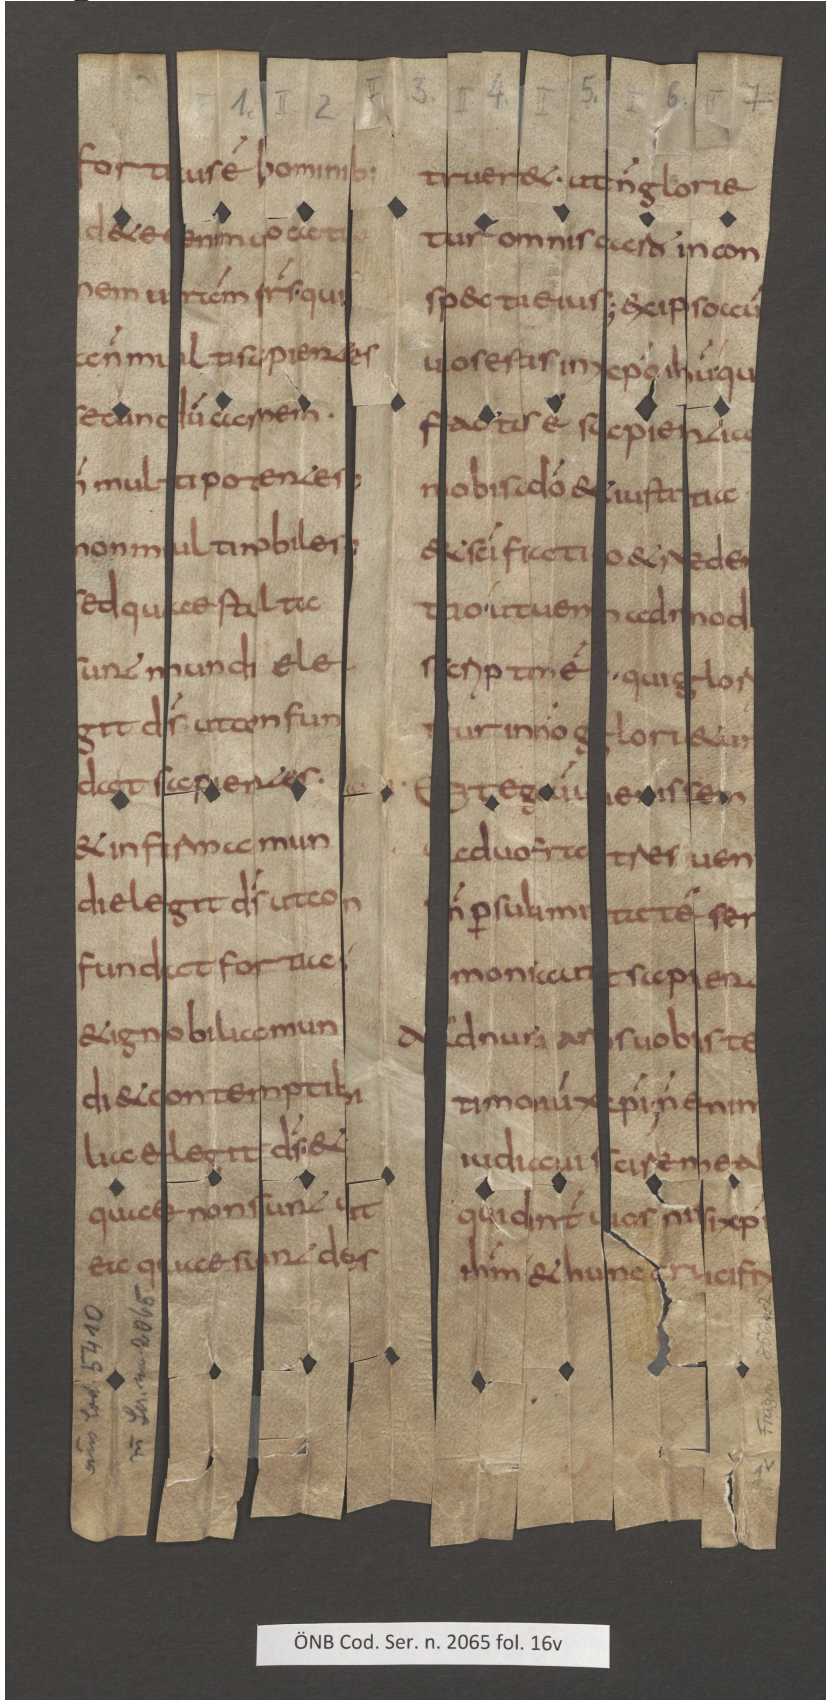 1. II 2 II 3. II 4. II 5. II 6. II 7.
fortius ē hominib;
nem uram frs qui
secundū carnem.
n̄ multi potentes;
non multi nobiles;
sed quae stulta
sunt mundi ele
git ds̄ ut confun
dat sapientes.
& infirma mun
di elegit ds̄ ut con
fundat fortia;
& ignobilia mun
di & contemptibi
lia elegit ds̄ &
quae non sunt ut
ea quae sunt des
truer&. ut n̄ glorie
tur omnis caro in con
spectu eius; ex ipso aū
uos estis in xp̄o ihū qui
factus ē sapientia
nobis a dō & iustitia
& scīficatio & redem
tio ut quem ad mod
scriptū ē. qui glori
tur in dn̄o glori&ur
Et ego cū uenissem
ad uos fratres ueni
n̄ p̱ sublimitatē ser
monis aut sapien
adnuntians uobis tes
timoniū xp̄i; n̄ enim
iudicaui scire me al
quid int̄ uos nisi xp̄m
ihm̄ & hunc crucifix
ÖNB Cod. Ser. n. 2065 fol. 16v